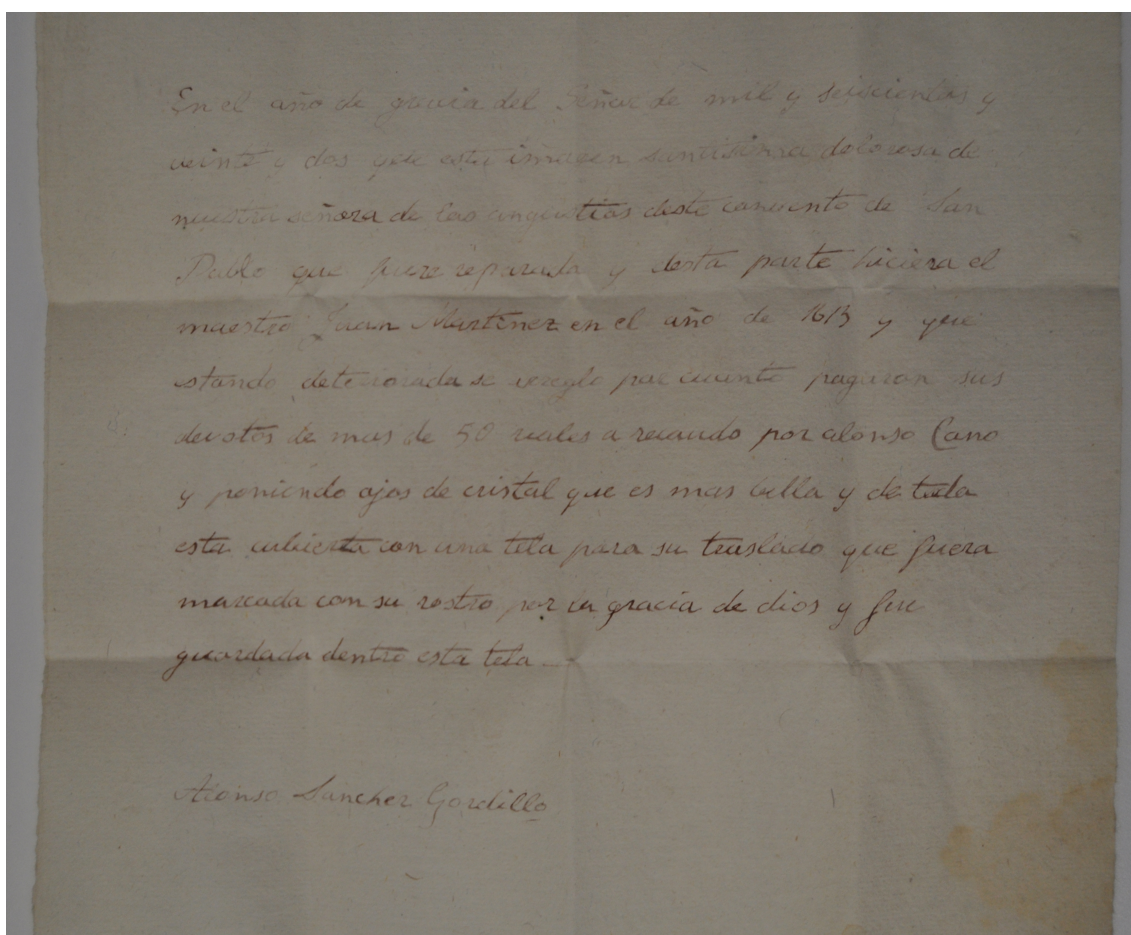 En el año de gracia del Señor de mil y seiscientos y
veinte y dos que esta imagen santisima dolorosa de
nuestra señora de las angustias deste convento de San
Pablo que fuere reparada y desta parte hiciera el
maestro Juan Martinez en el año de 1613 y que
stando deteriorada se areglo por cuanto pagaron sus
devotos de mas de 50 reales a recaudo por alonso Cano
y poniendo ojos de cristal que es mas bella y de toda
esta cubierta con una tela para su traslado que fuera
marcada con su rostro por la gracia de dios y fue
guardada dentro esta tela
Alonso Sanchez Gordillo